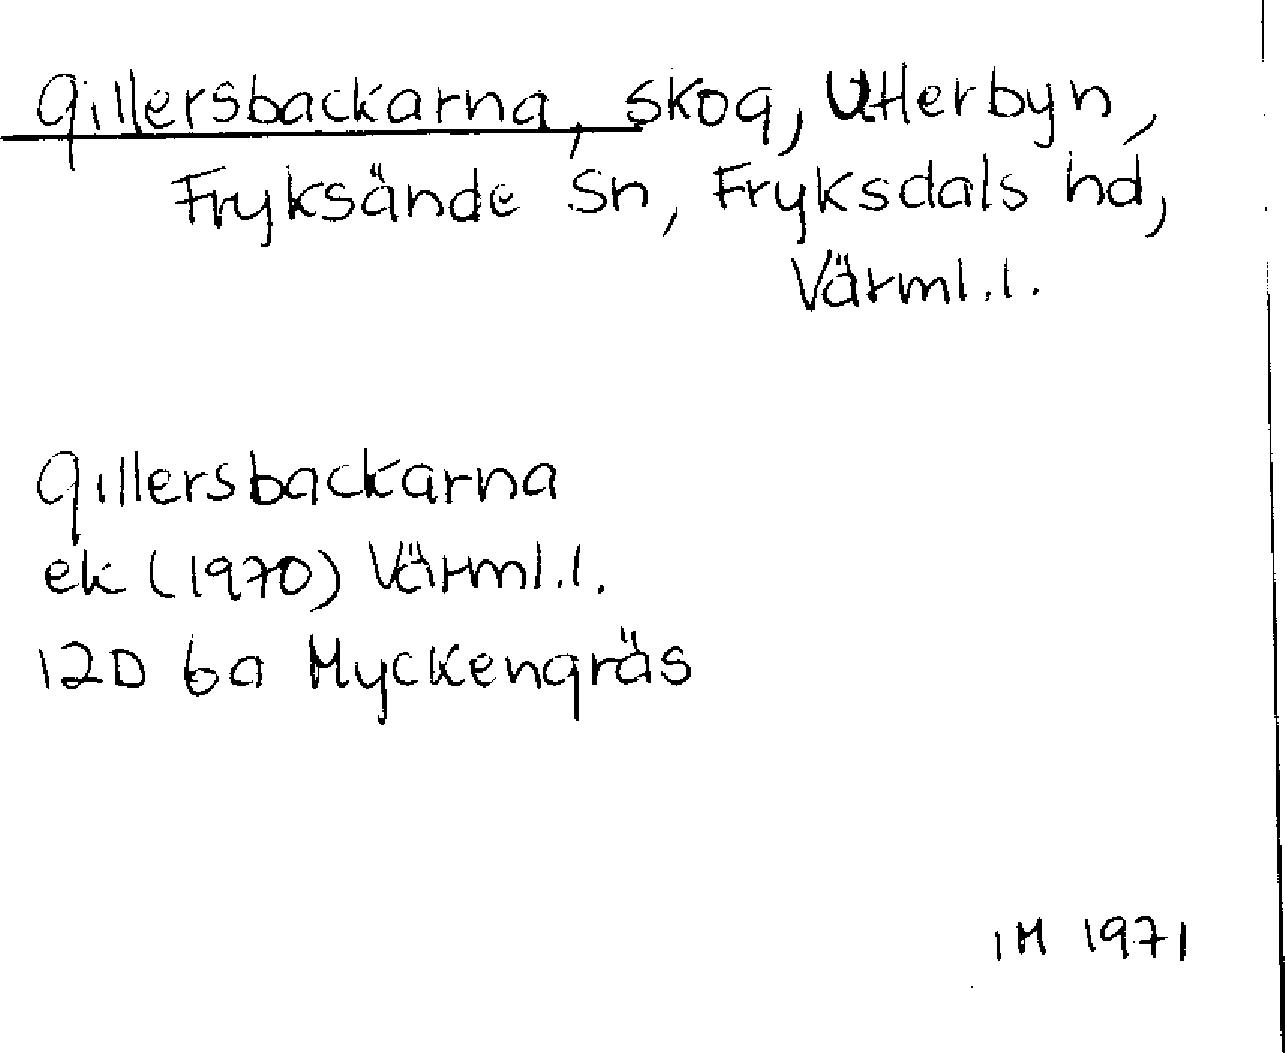 Gillersbackarna, skog, Utterbyn,
Fryksände Sn, Fryksdals hd,
Värml.l.
Gillersbackarna
ek (1970) Värml.l.
12D 6a Myckengräs
IM 1971